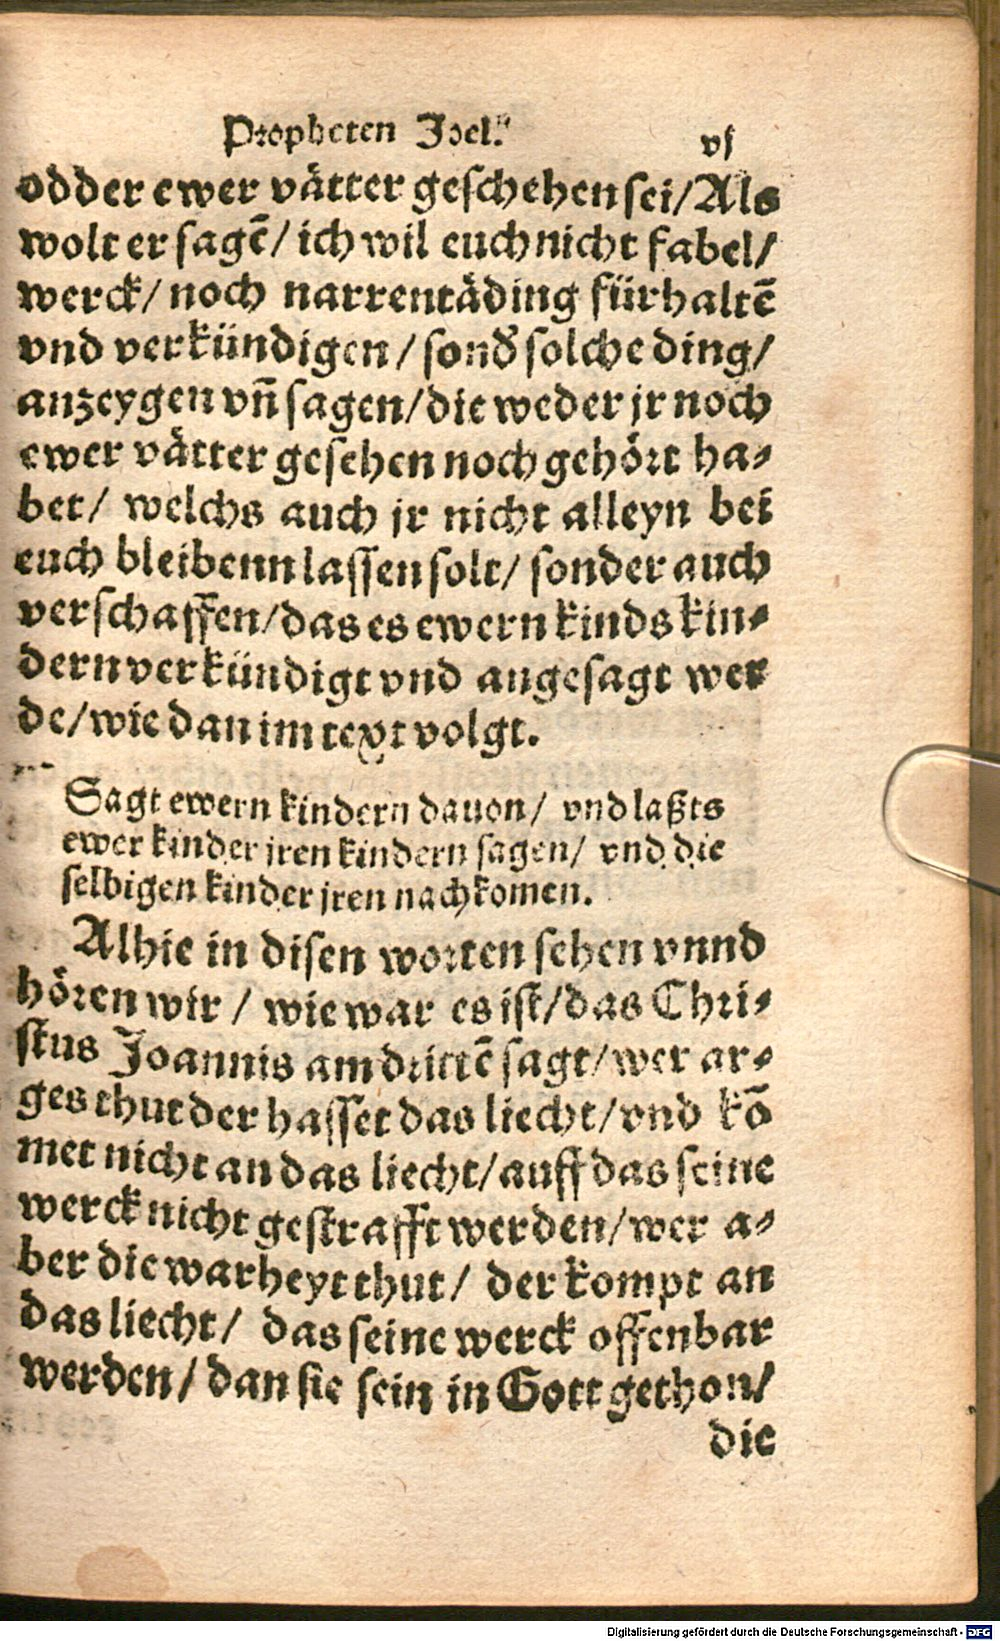 Propheten Joel.
vj
odder ewer vätter geschehen sei/ Als
wolt er sagē/ ich wil euch nicht fabel/
werck/ noch narrentäding fürhaltē
vnd verkündigen/ sonð solche ding/
anzeygen vñ sagen/ die weder jr noch
ewer vätter gesehen noch gehört ha⸗
bet/ welchs auch jr nicht alleyn bei
euch bleibenn lassen solt/ sonder auch
verschaffen/ das es ewern kinds kin⸗
dern verkündigt vnd angesagt wer
de/ wie dan im text volgt.
Sagt ewern kindern dauon/ vnd laßts
ewer kinder jren kindern sagen/ vnd die
selbigen kinder jren nachkomen.
Alhie in disen worten sehen vnnd
hören wir/ wie war es ist/ das Chri⸗
stus Joannis am drittē sagt/ wer ar⸗
ges thut der hasset das liecht/ vnd kō
met nicht an das liecht/ auff das seine
werck nicht gestrafft werden/ wer a⸗
ber die warheyt thut/ der kompt an
das liecht/ das seine werck offenbar
werden/ dan sie sein in Gott gethon/
die
Digitalisierung gefördert durch die Deutsche Forschungsgemeinschaft - DFG